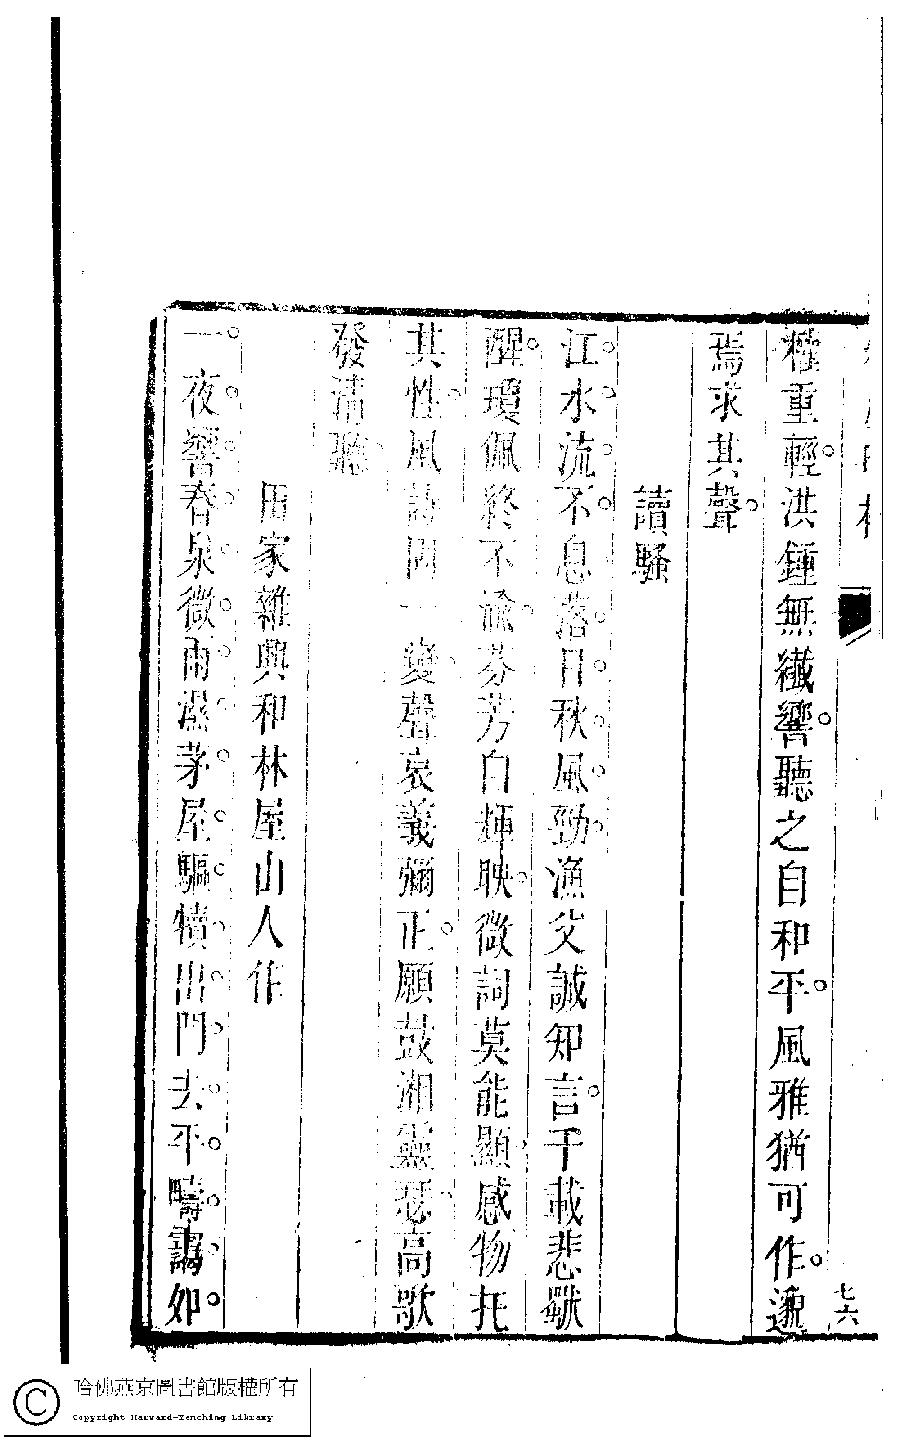 七六
種重輕洪鍾無纖響聽之自和平風雅猶可作邈
焉求其聲
讀騷
江水流不息落日秋風勁漁父誠知言千載悲獸
醒瓊佩終不渝芬芳自輝映微詞莫能顯感物托
其性風詩間一變聲哀義彌正願鼓湘靈瑟高歌
發清聽
田家雜興和林屋山人作
一夜響春泉微雨濕茅屋驅犢出門去平疇靄如
哈佛燕京圖書館版權所有
Copyright Harvard-Yenching Library